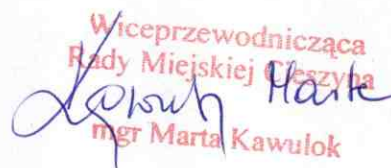 Wiceprzewodnicząca
Rady Miejskiej Cieszyna
Kawulok Marta
mgr Marta Kawulok